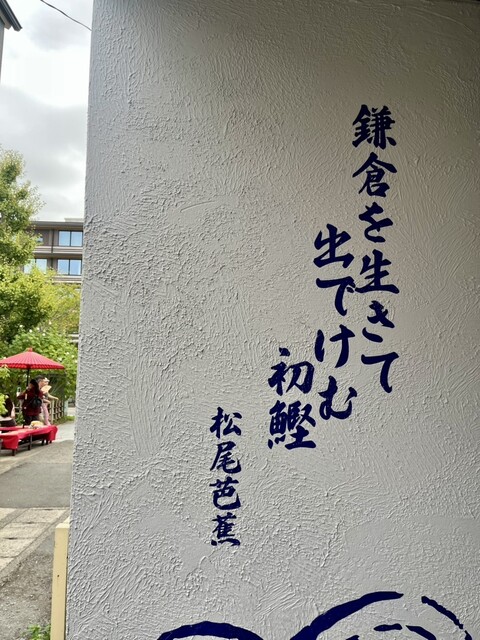 鎌倉を生きて
出でけむ
初鰹
松尾芭蕉